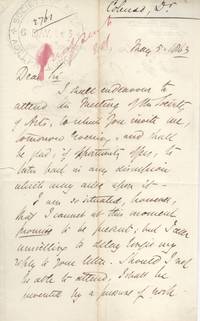 2761
Colenso, Dr
May 5. 1863
Dear Sir
I shall endeavour to
attend the Meeting of the Society
of Arts, to which you invite me,
tomorrow evening, and shall
be glad, if opportunity offers, to
take part in any discussion
which may arise upon it —
I am so situated, however,
that I cannot at this moment
promise to be present; but I am
unwilling to delay longer my
reply to your letter. Should I not
be able to attend, I shall be
prevented by a pressure of work